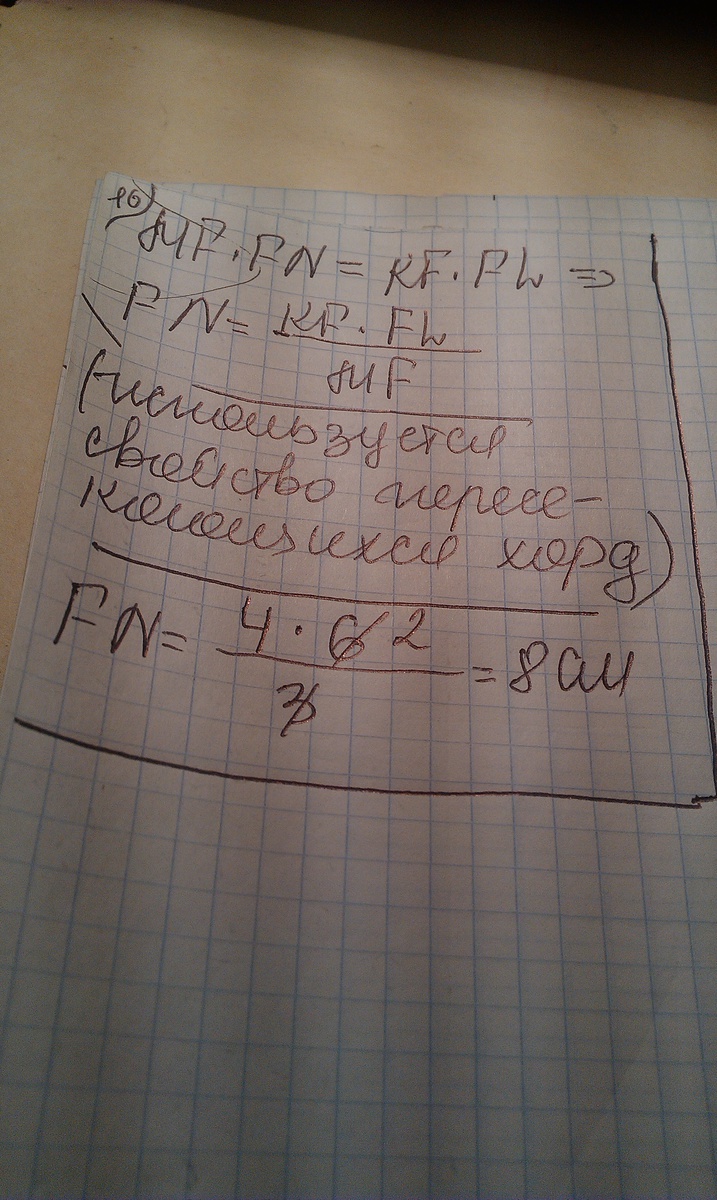 16)
MF·FN = KF·FL =>
FN = KF·FL
MF
(используется
свойство пересе-
кающихся хорд)
FN = 4·6 2
3
= 8 см